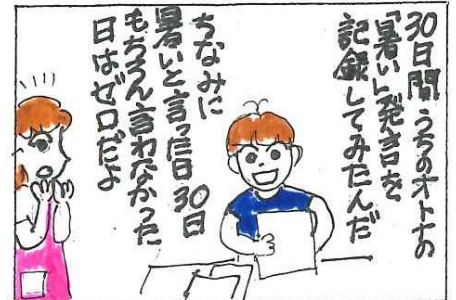 30日間うちのオトナの
「暑い」発言を
記録してみたんだ
ちなみに
暑いと言った日30日
もちろん言わなかった
日はゼロだよ